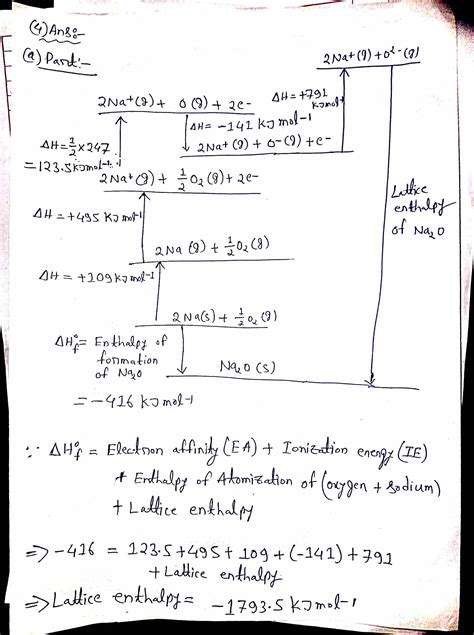 (4) Ans:-
(a) Part:-
2Na+(g) + O2-(g)
2Na+(g) + O(g) + 2e-
ΔH = +791 KJmol-1
ΔH = -141 KJ mol-1
2Na+(g) + O-(g) + e-
ΔH = 1/2 × 247
= 123.5 KJ mol-1
2Na+(g) + 1/2 O2(g) + 2e-
Lattice
enthalpy
of Na2O
ΔH = +495 KJ mol-1
2Na(g) + 1/2 O2(g)
ΔH = +109 KJ mol-1
2Na(s) + 1/2 O2(g)
ΔH°f = Enthalpy of
formation
of Na2O
Na2O(s)
= -416 KJ mol-1
∵ ΔH°f = Electron affinity (EA) + Ionization energy (IE)
+ Enthalpy of Atomization of (oxygen + sodium)
+ Lattice enthalpy
=> -416 = 123.5 + 495 + 109 + (-141) + 791
+ Lattice enthalpy
=> Lattice enthalpy = -1793.5 KJ mol-1